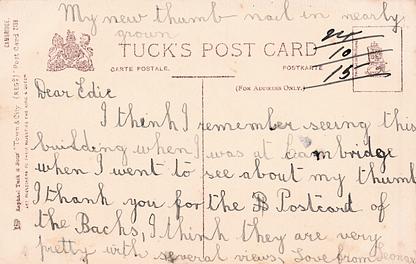 My new thumb nail in nearly
grown
TUCK'S POST CARD
CARTE POSTALE.
POSTKARTE
(FOR ADDRESS ONLY.)
10
15
CAMBRIDGE.
Dear Edie
I think I remember seeing this
building when I was at Cambridge
when I went to see about my thumb
I thank you for the B Postcard of
the Backs, I think they are very
pretty with several views, Love from